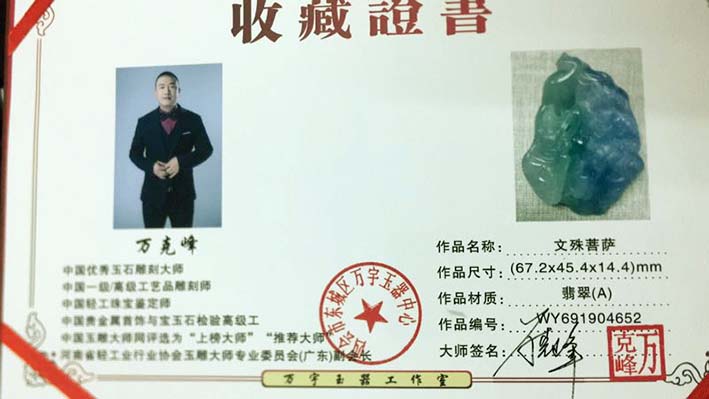 收藏證書
万克峰
中国优秀玉石雕刻大师
中国一级/高级工艺品雕刻师
中国轻工珠宝鉴定师
中国贵金属首饰与宝玉石检验高级工
中国玉雕大师网评选为“上榜大师”“推荐大师”
河南省轻工业行业协会玉雕大师专业委员会(广东)副会长
四会市东城区万宇玉器中心
作品名称: 文殊菩萨
作品尺寸: (67.2x45.4x14.4)mm
作品材质: 翡翠(A)
作品编号: WY691904652
大师签名: 万克峰
万克峰
万宇玉器工作室